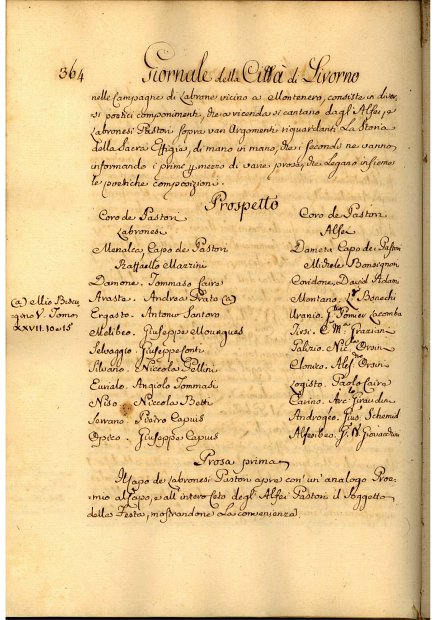 364 Giornale della Città di Livorno
nelle Campagne di Labrone vicino a Montenero, consiste in diver,
si poetici componimenti, che a vicenda si cantano dagl'Alfei, e
Labronesi Pastori sopra varj Argomenti riguardanti La Storia
della Sacra Effigie, di mano in mano, che i secondi ne vanno
informando i primi p mezzo di varie prose, che legano insieme
le poetiche composizioni.
Prospetto
Coro de Pastori
Labronesi
Menalca, Capo de Pastori
Raffaello Mazzini
Damone. Tommaso Cairo
Avasta. Andrea Prato (a)
Ergasto. Antonio Santoro
Melibeo. Giuseppe Mourgues
Selvaggio. Giuseppe Conti
Silvano. Niccola Pellini
Eurialo. Angiolo Tommasi
Niso. Niccola Betti
Serrano. Pietro Capuis
Opico. Giuseppe Capuis
Coro de Pastori
Alfei
Dameta Capo dei Pastori
Michele Bonsignori
Coridone. David
Montano. Bonechi
Uranio. Pomier
Tirsi. Graziani
Palizio. Nic. Orsin
Elonico. Ales. Orsin
Logisto. Paolo Cairo
Carino. Giraudin
Androgèo. Gius. Schemid
Alfesibeo.
(a) Mio
V. Tomo
XXVII. 10 e 15
Prosa prima
Il Capo de Labronesi Pastori apre con un'analogo Proe-
mio al Capo, e all'intero Ceto degl'Alfei Pastori il Soggetto
della Festa, mostrandone la convenienza